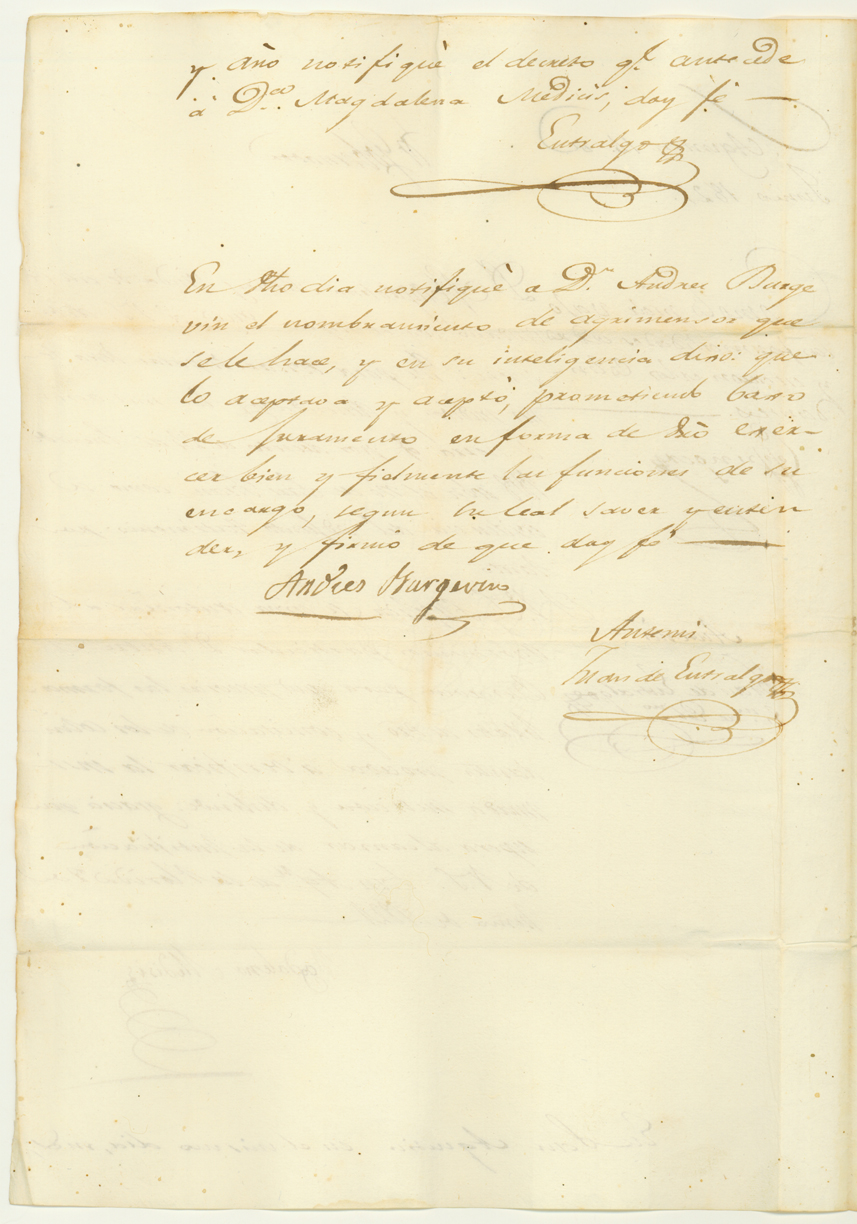 y año notifiquè el decreto qe. antecede
à Da. Magdalena Medicis; doy fé
Entralgo
En dho dia notifiquè a Dn. Andres Burge
vin el nombramiento de agrimensor que
se le hace, y en su inteligencia dixo: que
lo aceptava y aceptò, prometiendo baxo
de juramento en forma de dro exer-
cer bien y fielmente las funciones de su
encargo, segun su leal saver y enten
der, y firmó de que doy fé
Andres Burgevin
Antemi
Juan de Entralgo